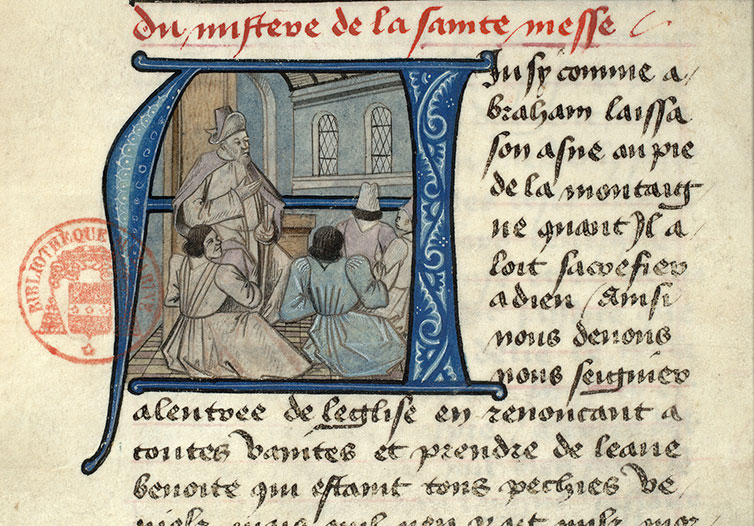 du mistere de la sainte messe
Ainsy comme a
braham laissa
son asne au pie
de la montaig
ne quant Il a
loit sacrefier
a dieu Ainsi
nous deuons
nous seignier
a lentree de leglise en renoncant a
toutes vanites et prendre de leaue
benoite qui estaint tous pechies ve
BIBLIOTHEQUE